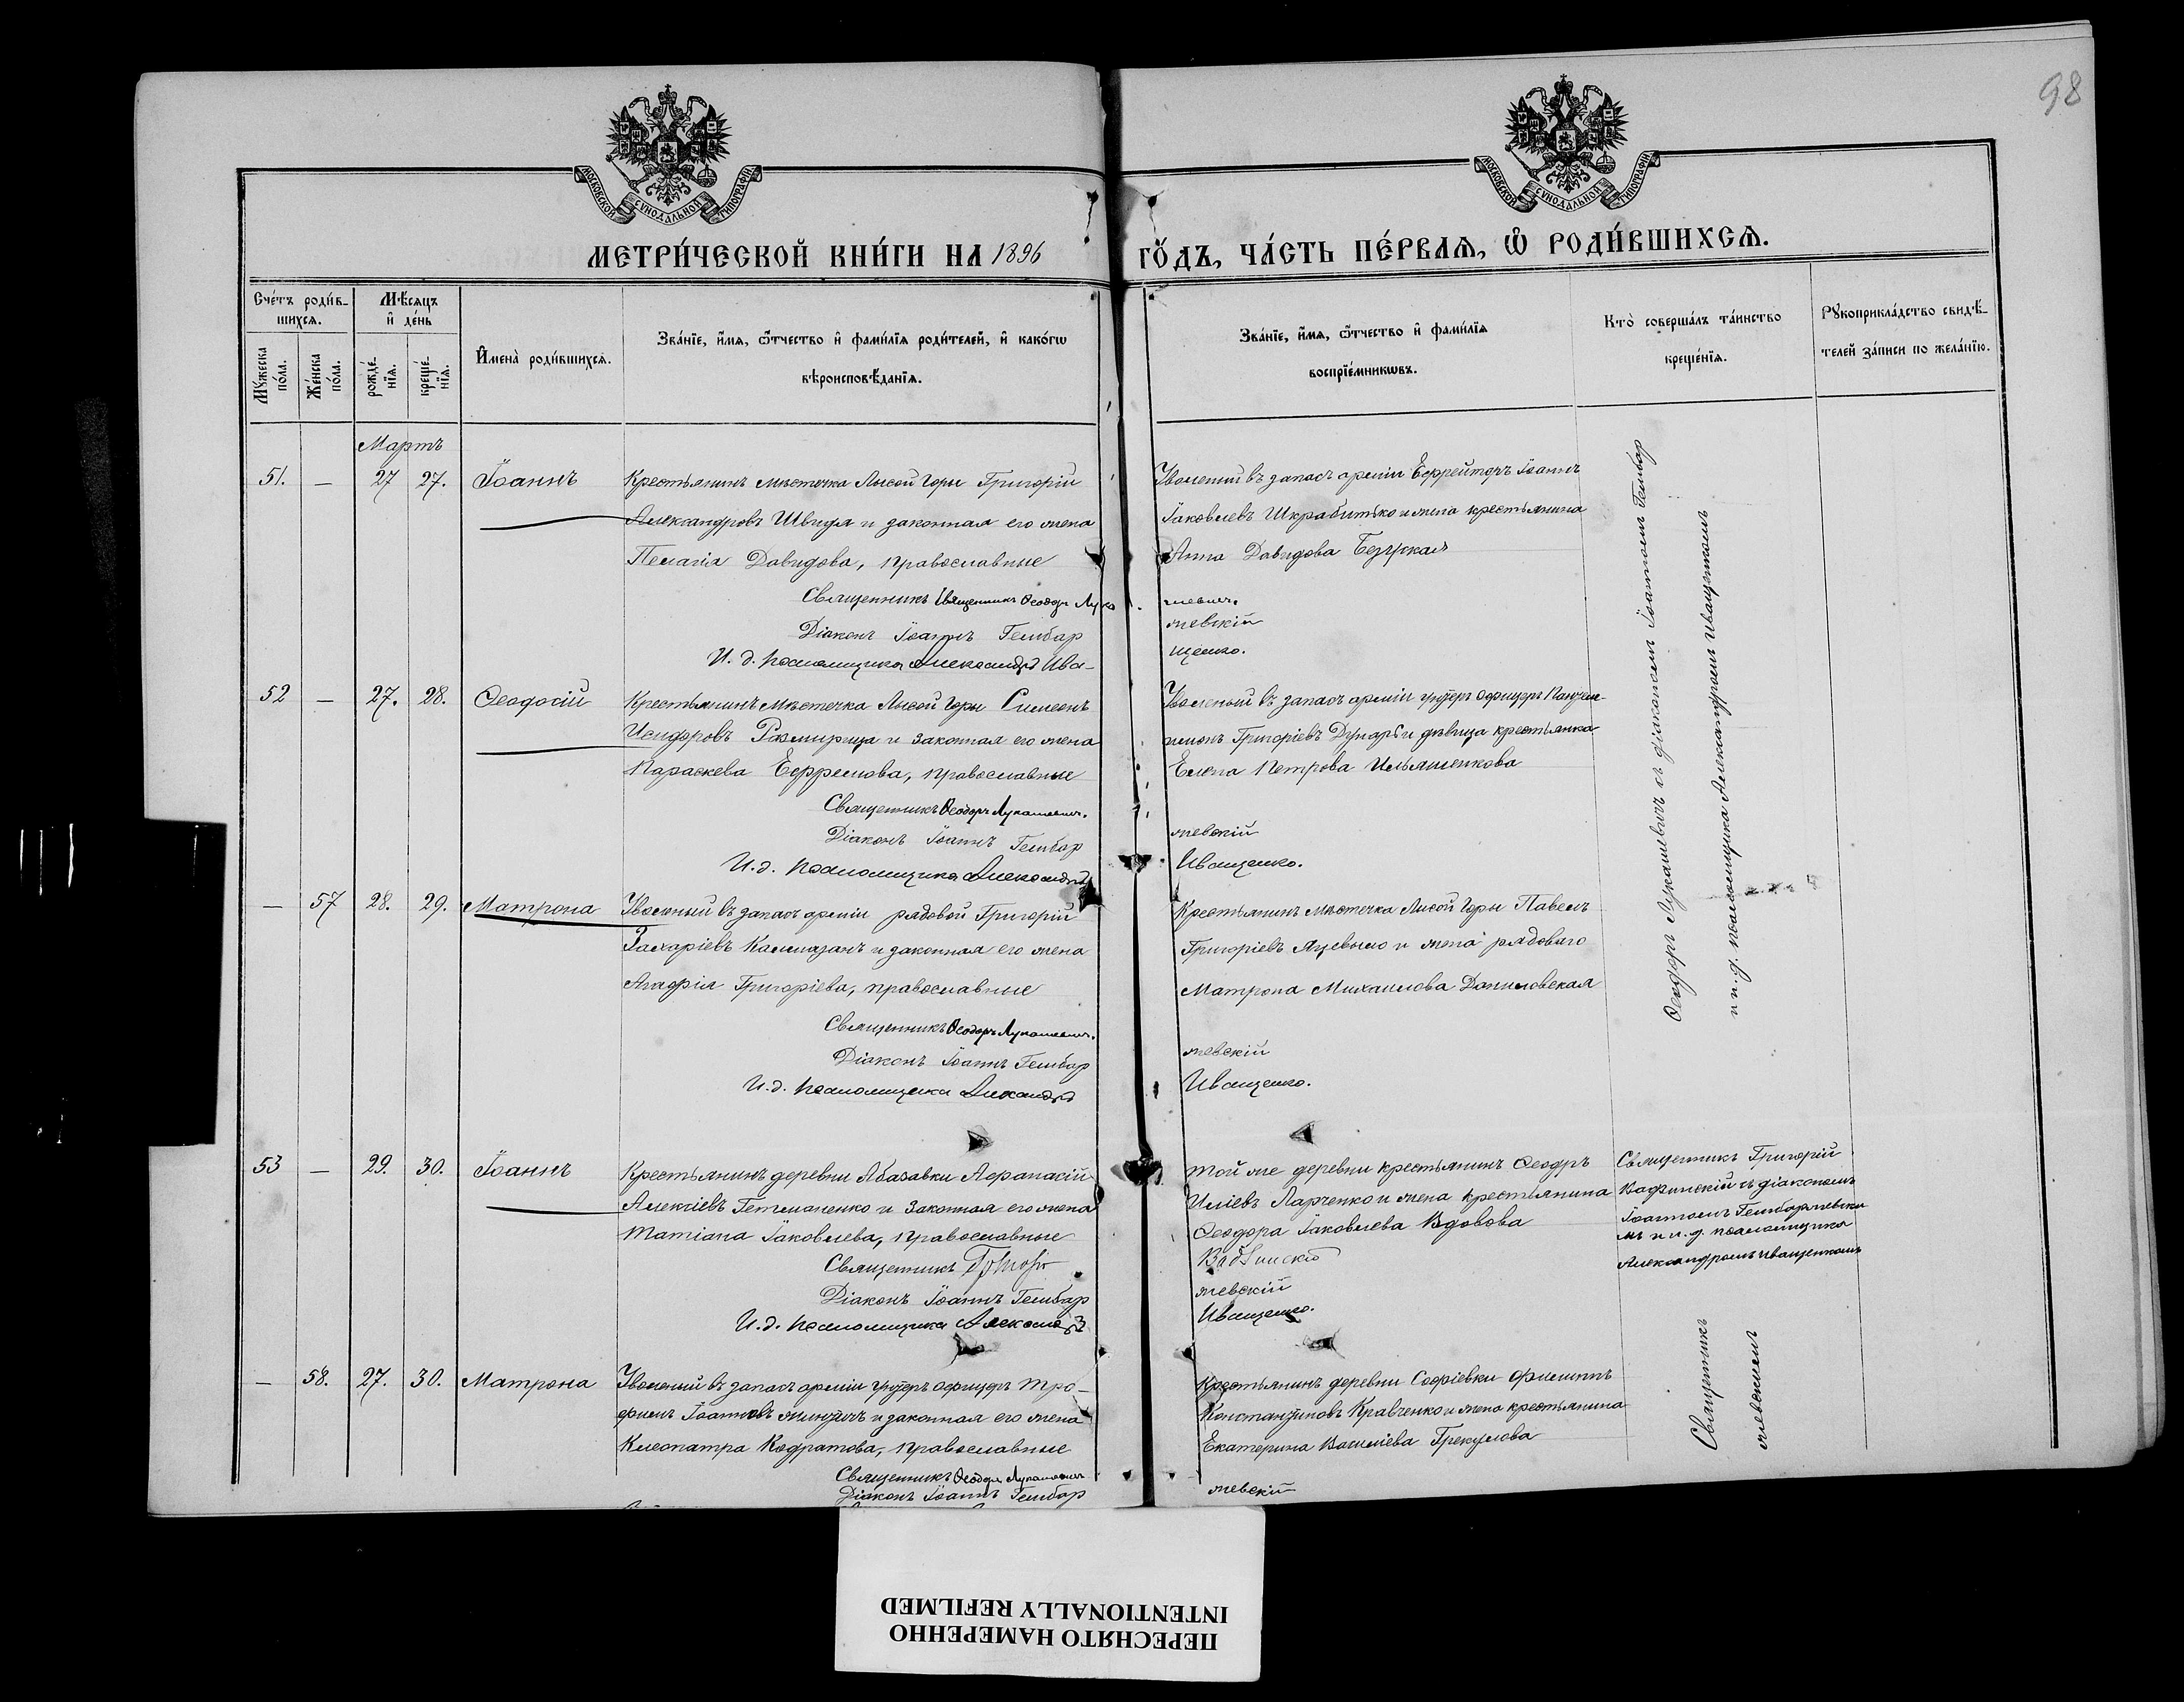 98
МОСКОВСКОЙ СУНОДАЛЬНОЙ ТИПОГРАФІИ
МОСКОВСКОЙ СУНОДАЛЬНОЙ ТИПОГРАФІИ
МЕТРИ́ЧЕСКОЙ КНИ́ГИ НА 1896 ГО́ДЪ, ЧА́СТЬ ПЕ́РВАѦ, Ѽ РОДИ́ВШИХСѦ.
Сче́тъ роди́в-
шихсѧ.
Мꙋ́жеска по́ла.
Же́нска по́ла.
Мѣ́сѧцъ и҆ де́нь
рожде́нїѧ.
креще́нїѧ.
И҆мена̀ роди́вшихсѧ.
Зва́нїе, и҆́мѧ, ѻ҆́тчество и҆ фамꙇ́лїѧ роди́телей, и҆ како́гѡ
вѣроисповѣ́данїѧ.
Зва́нїе, и҆́мѧ, ѻ҆́тчество и҆ фамꙇ́лїѧ
воспрїе́мникѡвъ.
Кто̀ соверша́лъ та́инство
креще́нїѧ.
Рꙋкоприкла́дство свидѣ́-
телей за́писи по жела́нїю.
Мартъ
51. — 27 27. Іоаннъ
Крестьянинъ мѣстечка Лысой Горы Григорій
Александровъ Швидя и законная его жена
Пелагія Давидова, православные
Священникъ Священникъ Ѳеодоръ Лука
Діаконъ Іоаннъ Гембар
И. д. псаломщика Александръ Ива-
Уволеный въ запасъ арміи Ефрейторъ Іоаннъ
Іаковлевъ Шкрабитько и жена крестьянина
Анна Давидова Безуская
шевичъ.
жевскій
щенко.
52 — 27. 28. Ѳеодосій
Крестьянинъ мѣстечка Лысой Горы Симеонъ
Исидоровъ Размирица и законная его жена
Параскева Ефремова, православные
Священникъ Ѳеодоръ Лукашевичъ.
Діаконъ Іоаннъ Гембар
И. д. псаломщика Александръ
Уволеный въ запасъ арміи унтеръ офицеръ Пантеле-
имонъ Григоріевъ и дѣвица крестьянка
Елена Петрова Ильяшенкова
жевскій
Иващенко.
— 57 28. 29. Матрона
Уволеный въ запасъ арміи рядовой Григорій
Захаріевъ Калмазанъ и законная его жена
Агафія Григоріева, православные
Священникъ Ѳеодоръ Лукашевичъ.
Діаконъ Іоаннъ Гембар
И. д. псаломщика Александръ
Крестьянинъ мѣстечка Лысой Горы Павелъ
Григоріевъ и жена рядоваго
Матрона Михаилова Даниловская
жевскій
Иващенко.
Ѳеодоръ Лукашевичъ съ діакономъ Іоанномъ Гембар
и и. д. псаломщика Александромъ Иващенкомъ
53 — 29. 30. Іоаннъ
Крестьянинъ деревни Абазавки Аѳанасій
Алексіевъ Гетманенко и законная его жена
Татіана Іаковлева, православные
Священникъ Григорій
Діаконъ Іоаннъ Гембар
И. д. псаломщика Александръ
Той же деревни крестьянинъ Ѳеодръ
Иліевъ Ларченко и жена крестьянина
Ѳеодора Іаковлева Вдовова
жевскій
Иващенко.
Священникъ Григорій
съ діакономъ
Іоанномъ Гембаржевски
мъ и и. д. псаломщика
Александромъ Иващенкомъ
— 58. 27. 30. Матрона
Уволеный въ запасъ арміи унтеръ офицеръ Тро-
фимъ Іоанновъ и законная его жена
Клеопатра Кодратова, православные
Священникъ Ѳеодоръ Лукашевичъ
Діаконъ Іоаннъ Гембар
Крестьянинъ деревни Софіевки Филиппъ
Константиновъ Кравченко и жена крестьянина
Екатерина Василіева Грекулова
жевскій
Священникъ
жевскимъ
ПЕРЕСНЯТО НАМЕРЕННО
INTENTIONALLY REFILMED